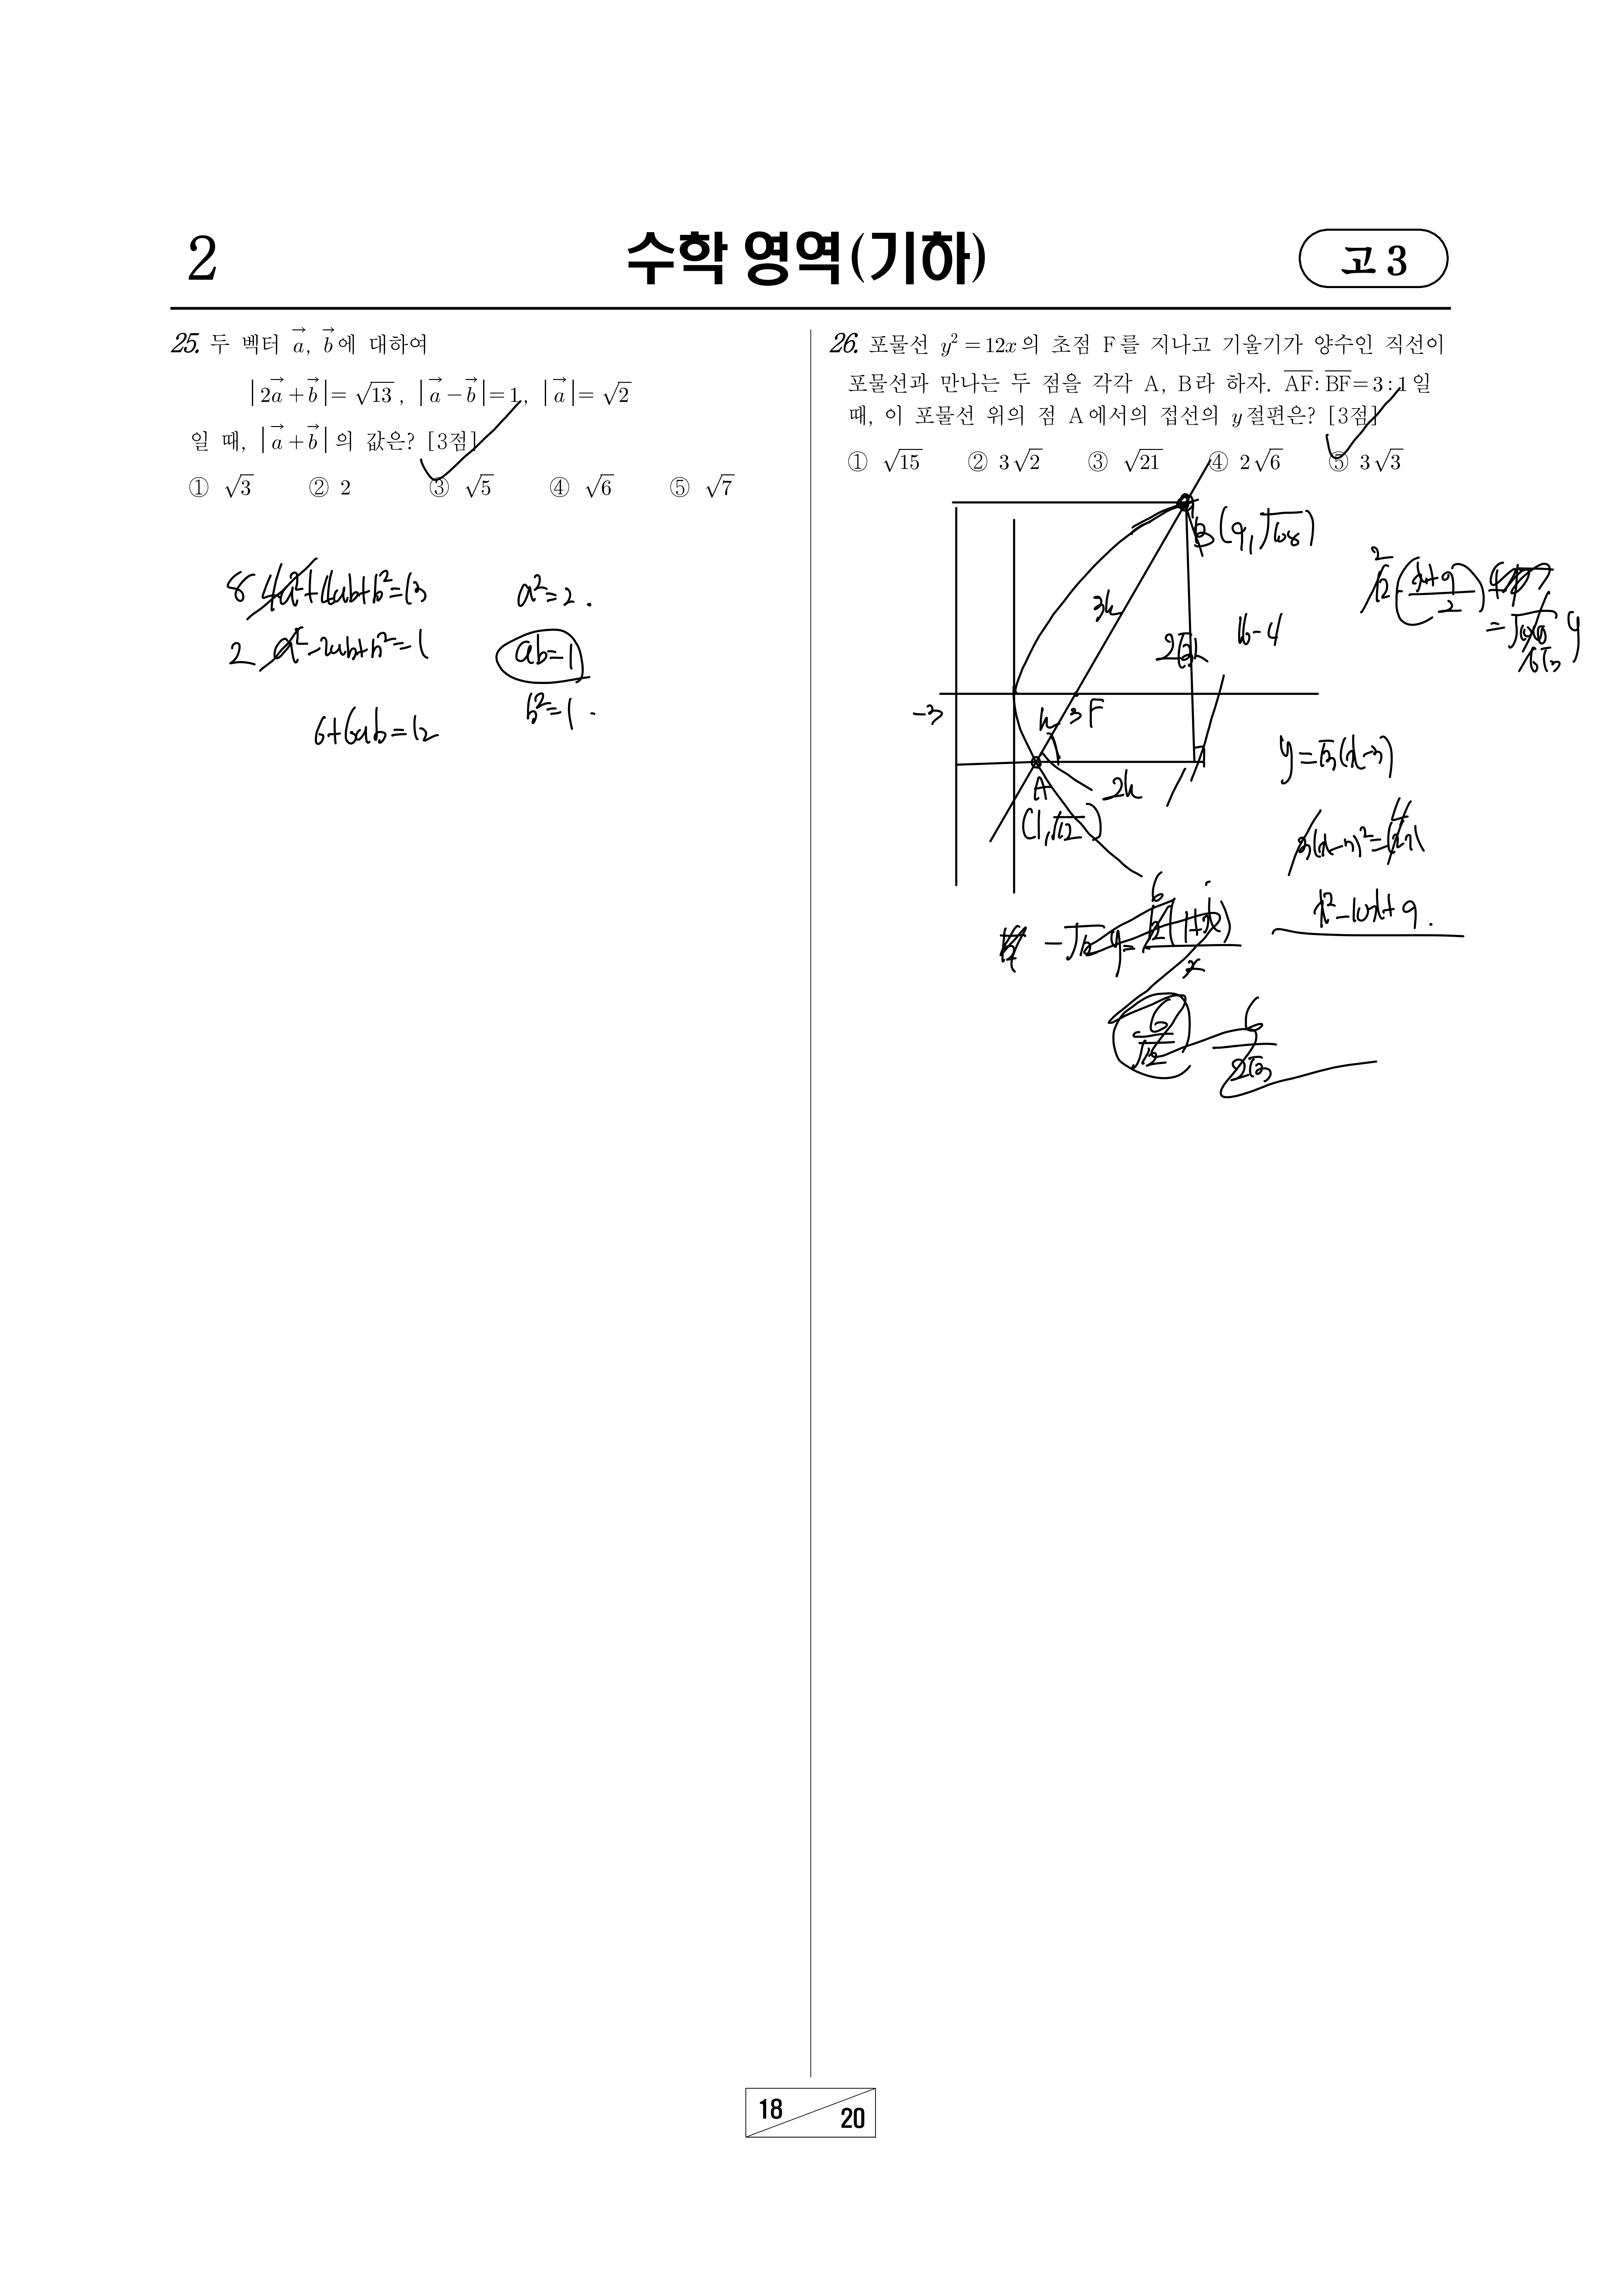 2
수학 영역(기하)
고 3
25. 두 벡터 a⃗, b⃗에 대하여
|2a⃗+b⃗|=√13, |a⃗-b⃗|=1, |a⃗|=√2
일 때, |a⃗+b⃗|의 값은? [3점]
① √3 ② 2 ③ √5 ④ √6 ⑤ √7
8 4a²+4ab+b²=13
2 a²-2ab+b²=1
6+6ab=12
a²=2.
ab=1
b²=1.
26. 포물선 y²=12x의 초점 F를 지나고 기울기가 양수인 직선이
포물선과 만나는 두 점을 각각 A, B라 하자. AF:BF=3:1일
때, 이 포물선 위의 점 A에서의 접선의 y절편은? [3점]
① √15 ② 3√2 ③ √21 ④ 2√6 ⑤ 3√3
B(9,√108)
3k
2√3k
16-4
-3
k
3
F
A
2k
(1,√12)
12·(x+9)/2
2
=√108 y
6√3
y=√3(x-3)
3(x-3)²=12x
4
x²-10x+9.
-√12 y=12(1+x)/2
6
6/√12
6/2√3
18
20